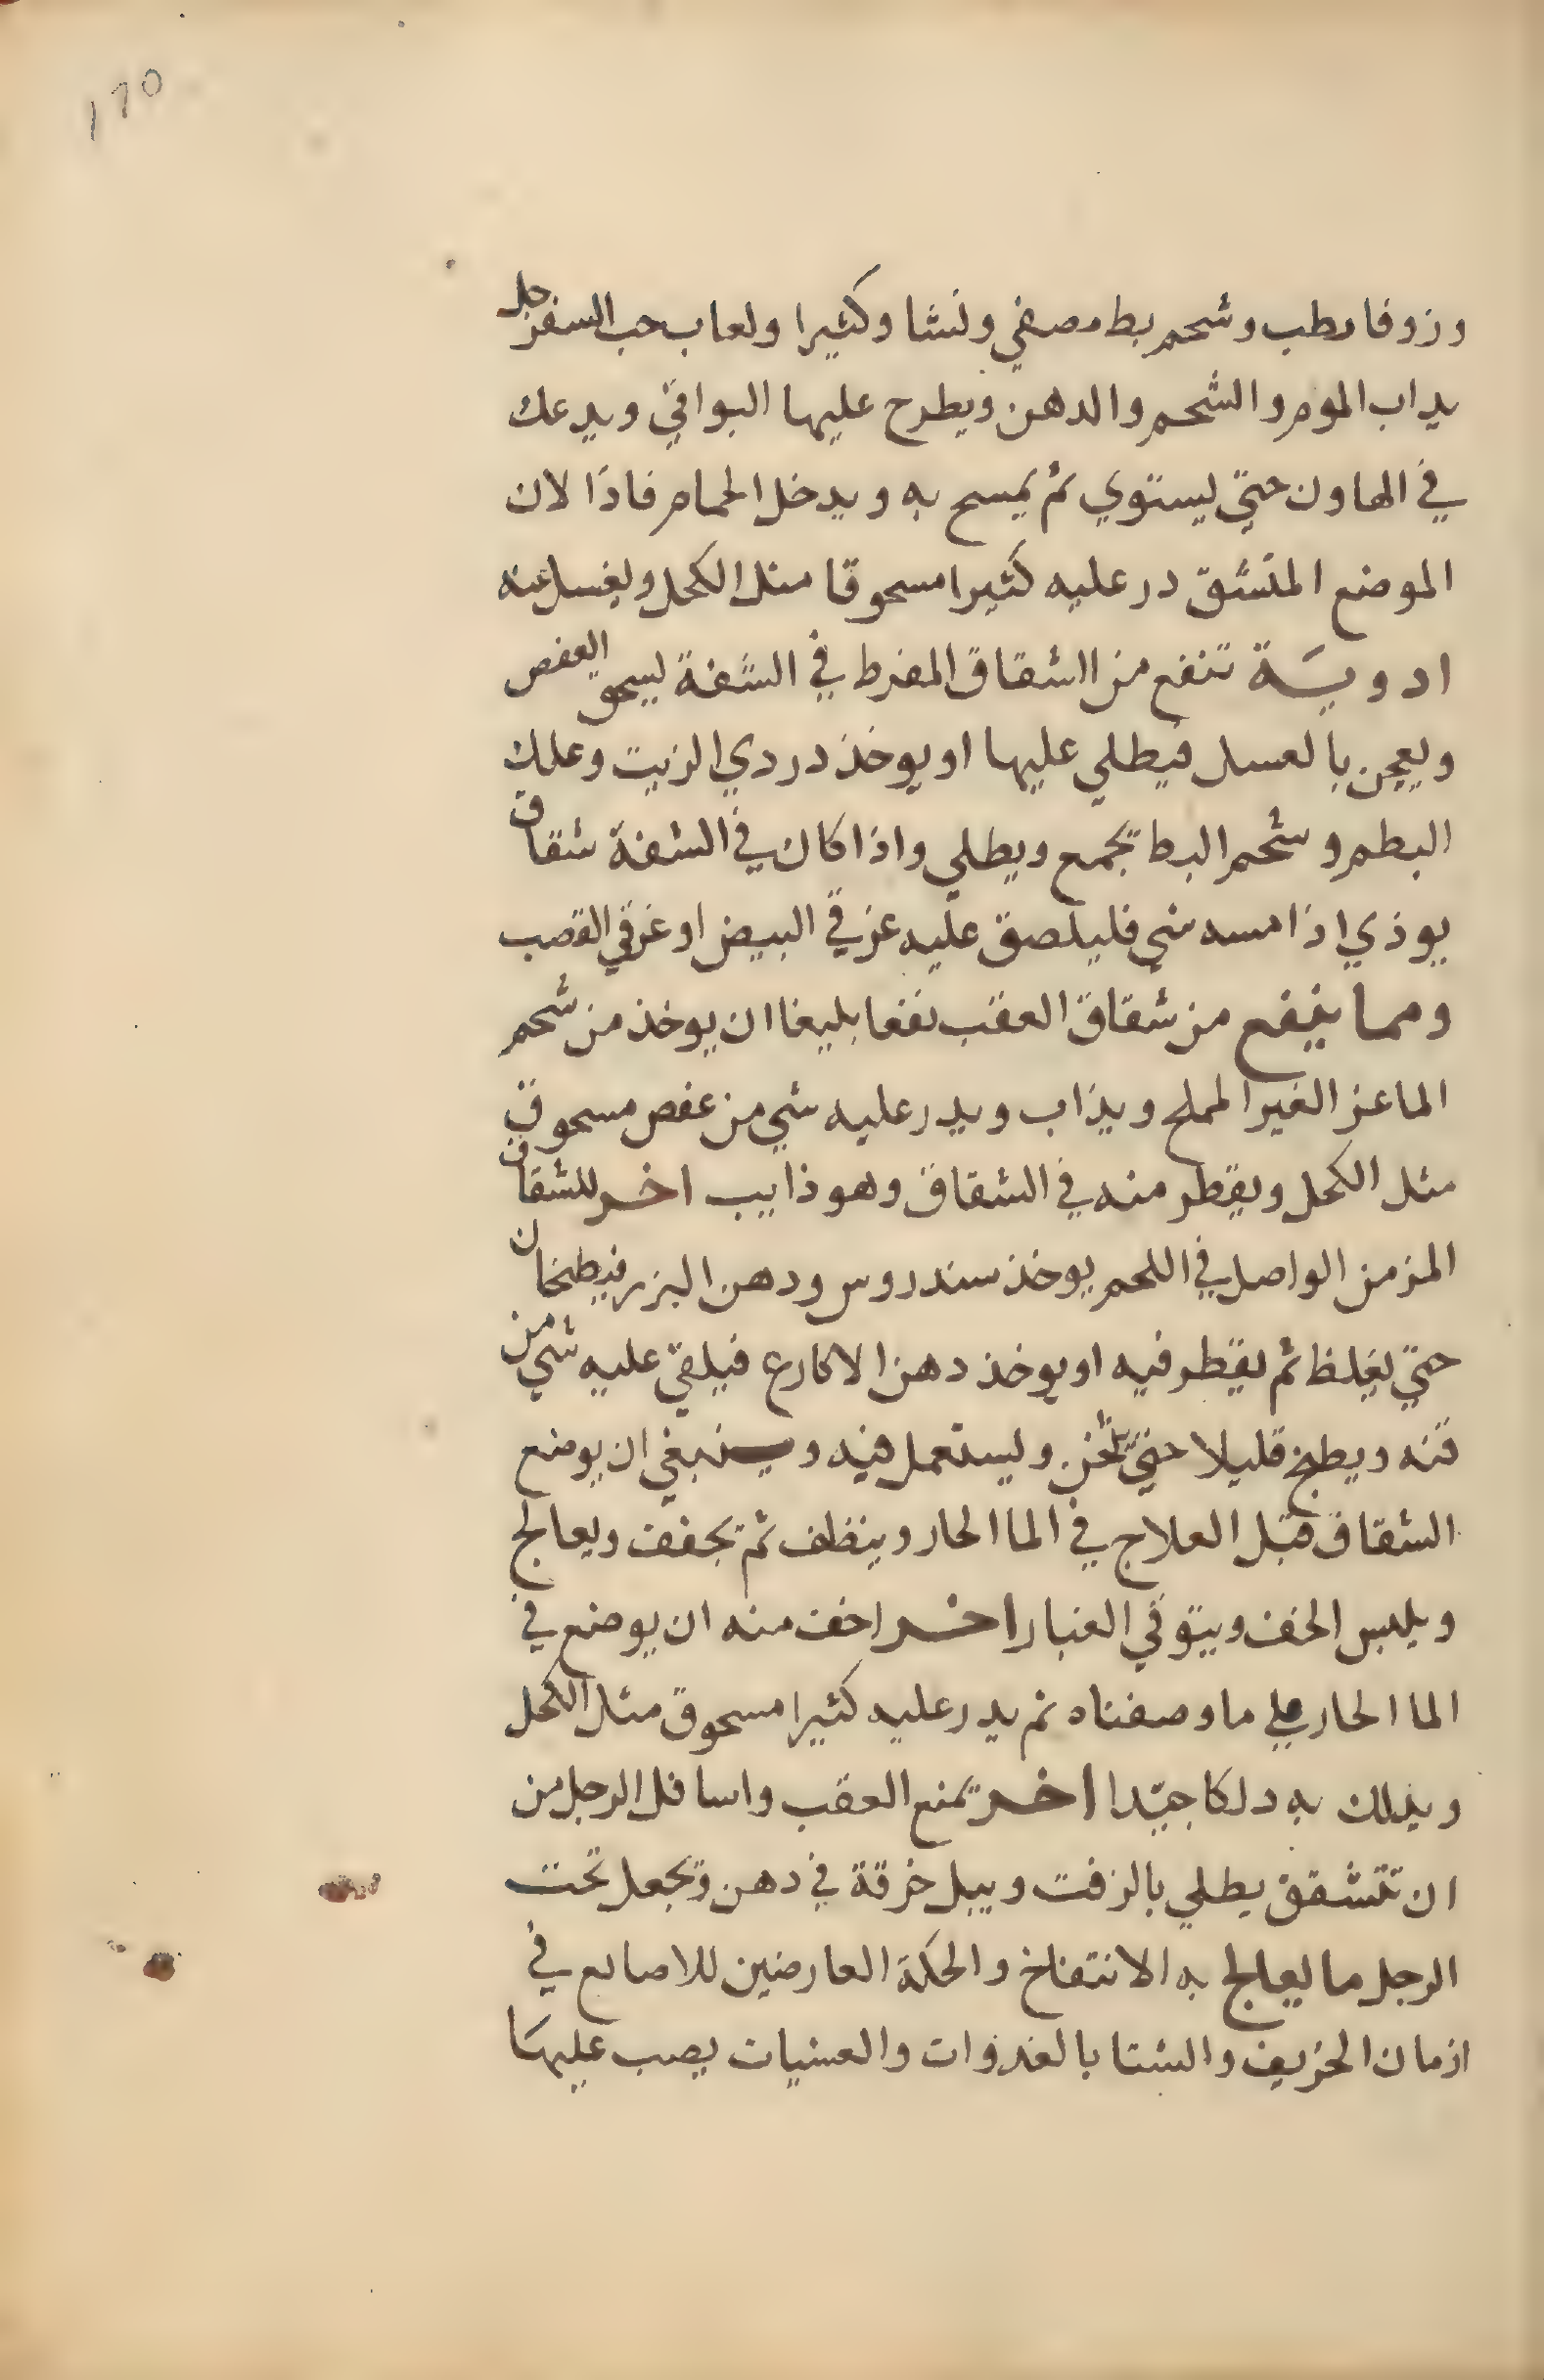 ١٦٥
وزوفا رطب وشحم بط مصفي ونشا وكثيرا ولعاب حب السفرجل
يداب الموم والشحم والدهن ويطرح عليها البواقي ويدعك
في الهاون حتي يستوي ثم يمسح به ويدخل الحمام فاذا لان
الموضع المتشقق در عليه كثيرا مسحوقا مثل الكحل ويغسل عنه
ادوية تنفع من الشقاق المفرط في الشفة يسحق العفص
ويعجن بالعسل فيطلي عليها او يوخذ دردي الزيت وعلك
البطم وشحم البط تجمع ويطلي واذا كان في الشفة شقاق
يوذي اذا مسه شي فليلصق عليه غرقي البيض او غرقي القصب
ومما ينفع من شقاق العقب نفعا بليغا ان يوخذ من شحم
الماعز الغير المملح ويذاب ويدر عليه شي من عفص مسحوق
مثل الكحل ويقطر منه في الشقاق وهو ذايب اخر للشقاق
المزمن الواصل في اللحم يوخذ سندروس ودهن البزر فيطبخان
حتي يغلظ ثم يقطر فيه او يوخذ دهن الاكارع فيلقي عليه شي من
قنه ويطبخ قليلا حتي يثخن ويستعمل فيه وينبغي ان يوضع
الشقاق قبل العلاج في الما الحار وينظف ثم تجفف ويعالج
ويلبس الخف ويتوقي الغبار اخر اخف منه ان يوضع في
الما الحار علي ما وصفناه ثم يدر عليه كثيرا مسحوق مثل الكحل
ويدلك به دلكا جيدا اخر تمنع العقب واسافل الرجل من
ان تتشقق يطلي بالزفت ويبل خرقة في دهن وتجعل تحت
الرجل ما يعالج به الانتفاخ والحكة العارضين للاصابع في
ازمان الخريف والشتا بالغدوات والعشيات يصب عليها